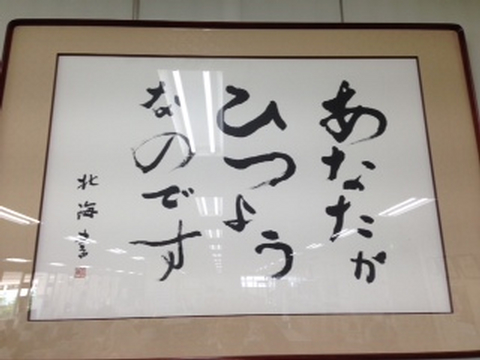 あなたが
ひつよう
なのです
北海